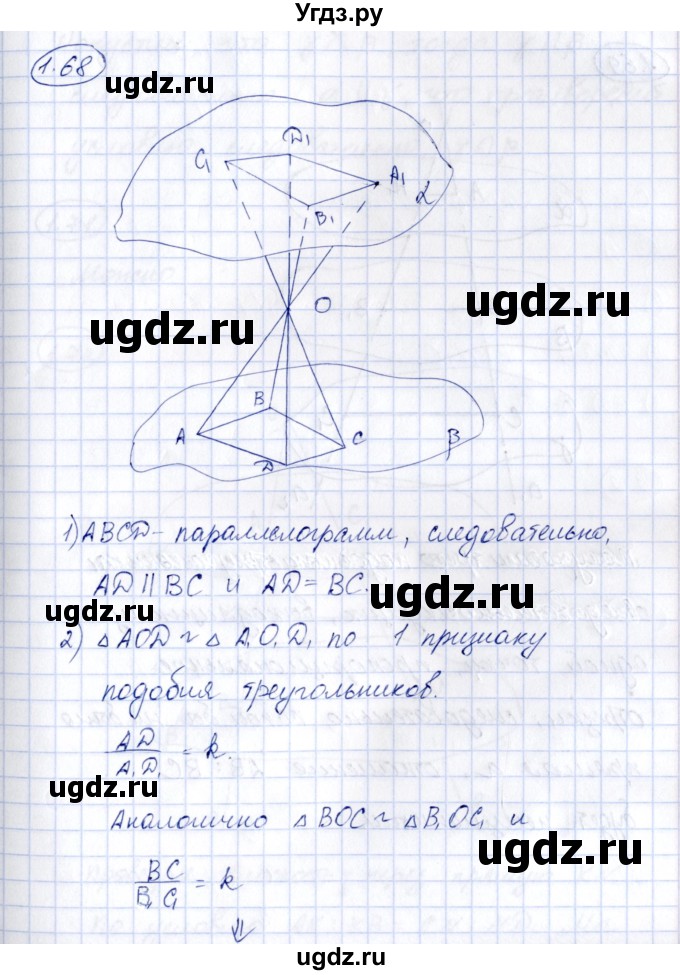 Угдз.ру
1.68
ugdz.ru
ugdz.ru
C₁
D₁
A₁
B₁
α
O
ugdz.ru
ugdz.ru
B
A
C
D
β
1) ABCD - параллелограмм, следовательно,
AD || BC и AD = BC.
ugdz.ru
2) △AOD ~ △A₁O₁D₁ по 1 признаку
ugdz.ru
подобия треугольников.
AD / A₁D₁ = k.
ugdz.ru
Аналогично △BOC ~ △B₁OC₁ и
ugdz.ru
BC / B₁C₁ = k
⇓
ugdz.ru